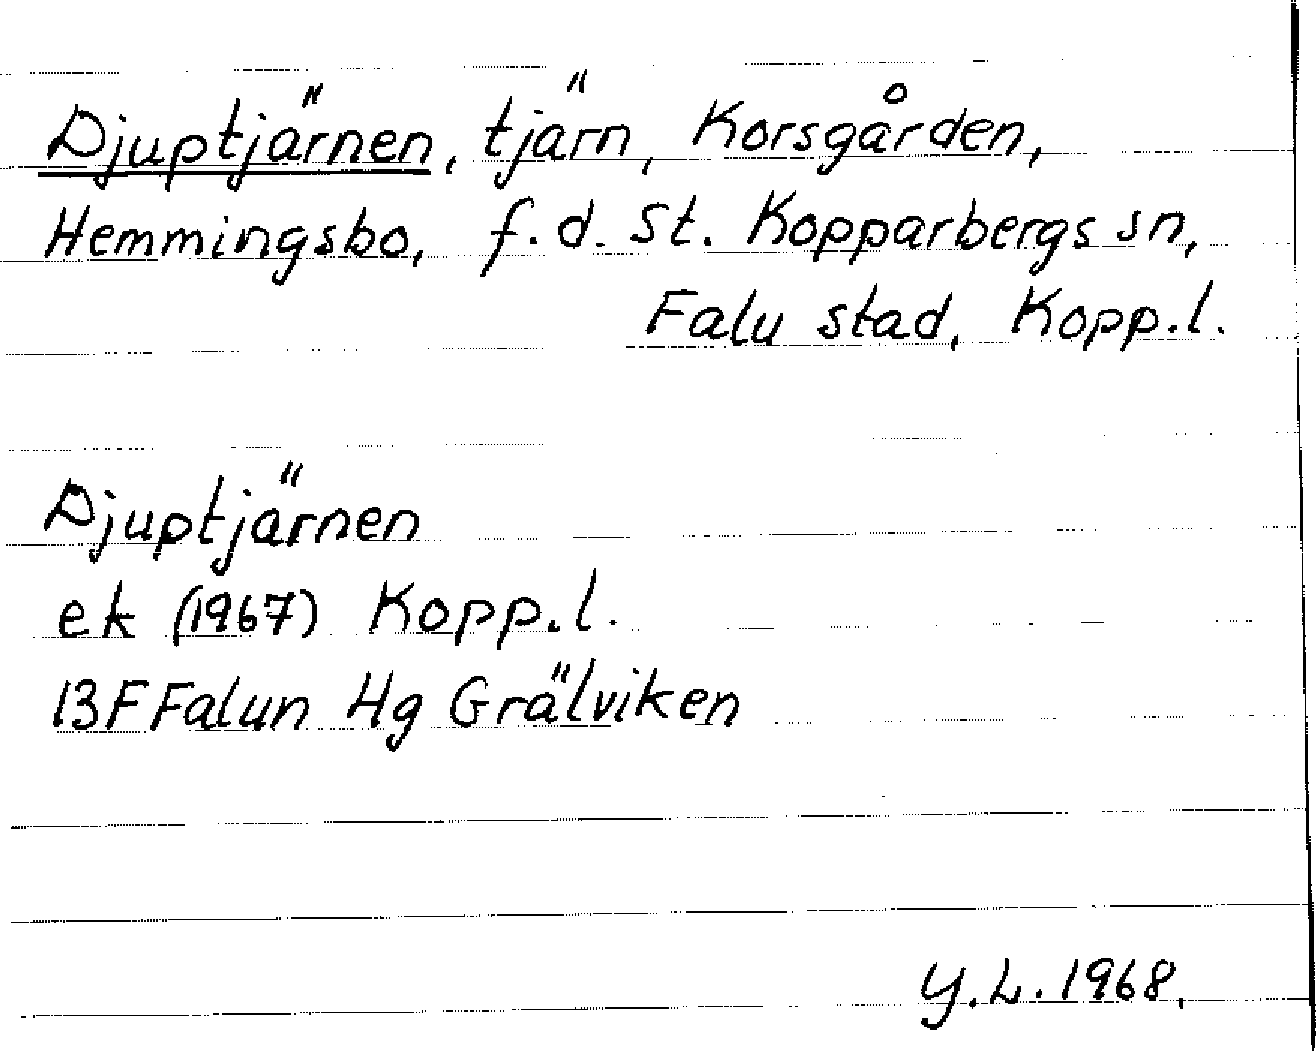 Djuptjärnen, tjärn, Korsgården,
Hemmingsbo, f.d. St. Kopparbergs sn,
Falu stad, Kopp.l.
Djuptjärnen
ek (1967) Kopp.l.
13F Falun Hg Grälviken
Y.L. 1968.